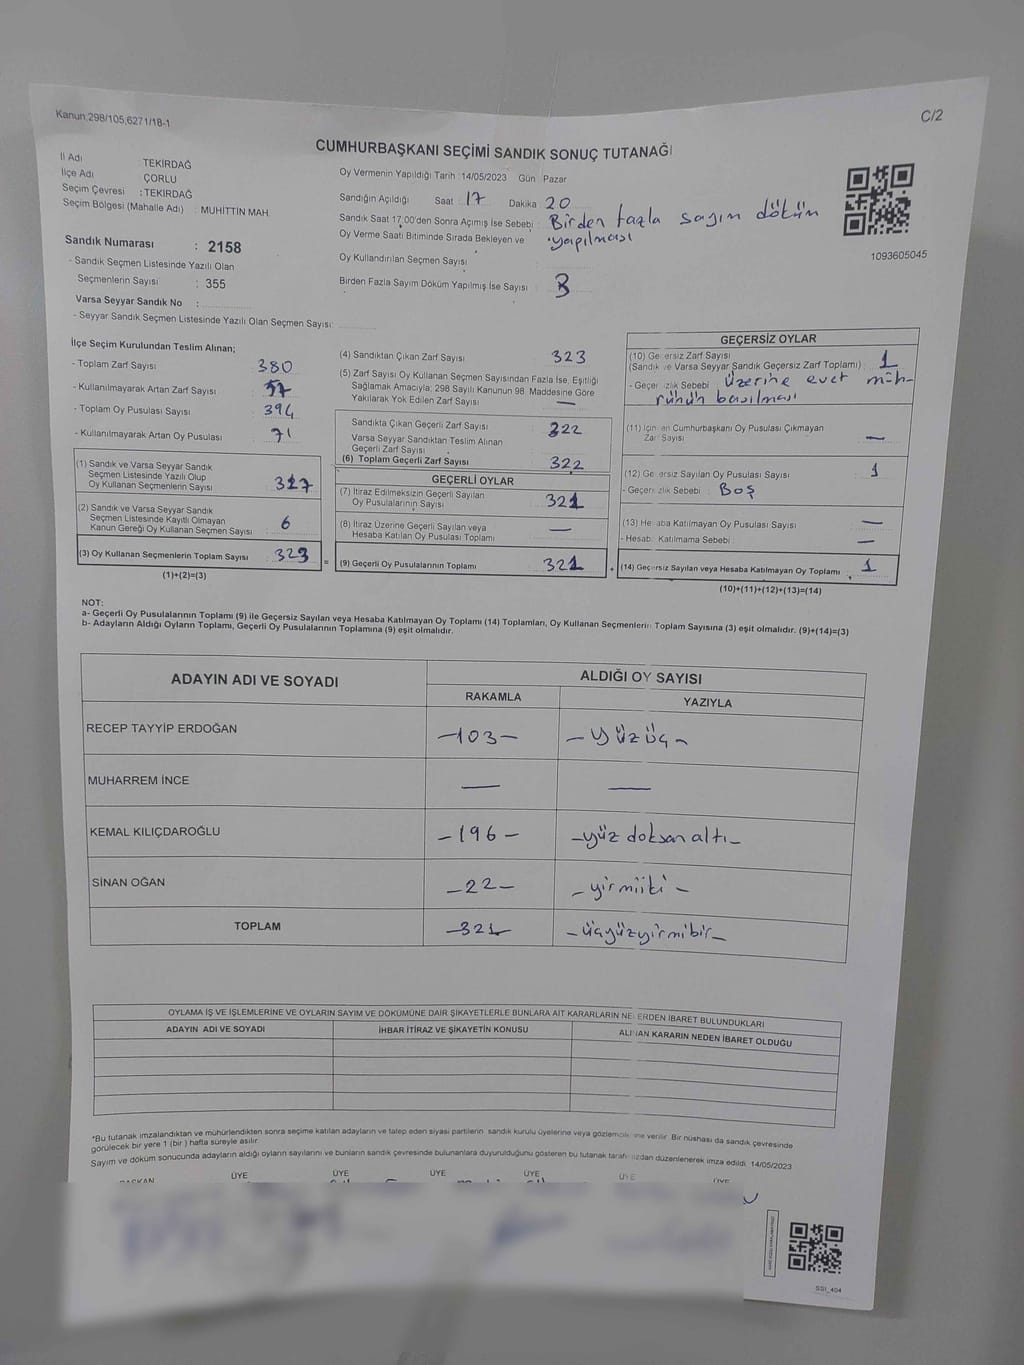 Kanun;298/105;6271/18-1
C/2
CUMHURBAŞKANI SEÇİMİ SANDIK SONUÇ TUTANAĞI
İl Adı TEKİRDAĞ
İlçe Adı ÇORLU
Seçim Çevresi : TEKİRDAĞ
Seçim Bölgesi (Mahalle Adı) : MUHİTTİN MAH.
Sandık Numarası : 2158
- Sandık Seçmen Listesinde Yazılı Olan
Seçmenlerin Sayısı : 355
Varsa Seyyar Sandık No :
- Seyyar Sandık Seçmen Listesinde Yazılı Olan Seçmen Sayısı:
Oy Vermenin Yapıldığı Tarih : 14/05/2023 Gün Pazar
Sandığın Açıldığı Saat : 17 Dakika 20
Sandık Saat 17.00'den Sonra Açımış İse Sebebi : Birden fazla sayım döküm
Oy Verme Saati Bitiminde Sırada Bekleyen ve yapılması
Oy Kullandırılan Seçmen Sayısı
Birden Fazla Sayım Döküm Yapılmış İse Sayısı 3
1093605045
İlçe Seçim Kurulundan Teslim Alınan;
- Toplam Zarf Sayısı : 380
- Kullanılmayarak Artan Zarf Sayısı : 57
- Toplam Oy Pusulası Sayısı : 394
- Kullanılmayarak Artan Oy Pusulası : 71
(1) Sandık ve Varsa Seyyar Sandık
Seçmen Listesinde Yazılı Olup
Oy Kullanan Seçmenlerin Sayısı : 317
(2) Sandık ve Varsa Seyyar Sandık
Seçmen Listesinde Kayıtlı Olmayan
Kanun Gereği Oy Kullanan Seçmen Sayısı : 6
(3) Oy Kullanan Seçmenlerin Toplam Sayısı : 323
(1)+(2)=(3)
(4) Sandıktan Çıkan Zarf Sayısı : 323
(5) Zarf Sayısı Oy Kullanan Seçmen Sayısından Fazla İse, Eşitliği
Sağlamak Amacıyla; 298 Sayılı Kanunun 98. Maddesine Göre
Yakılarak Yok Edilen Zarf Sayısı : —
Sandıkta Çıkan Geçerli Zarf Sayısı : 322
Varsa Seyyar Sandıktan Teslim Alınan
Geçerli Zarf Sayısı :
(6) Toplam Geçerli Zarf Sayısı : 322
=
GEÇERLİ OYLAR
(7) İtiraz Edilmeksizin Geçerli Sayılan
Oy Pusulalarının Sayısı : 321
(8) İtiraz Üzerine Geçerli Sayılan veya
Hesaba Katılan Oy Pusulası Toplamı : —
(9) Geçerli Oy Pusulalarının Toplamı : 321
+
GEÇERSİZ OYLAR
(10) Geçersiz Zarf Sayısı
(Sandık ve Varsa Seyyar Sandık Geçersiz Zarf Toplamı) : 1
- Geçersizlik Sebebi : üzerine evet müh-
rünün basılması
(11) İçinden Cumhurbaşkanı Oy Pusulası Çıkmayan
Zarf Sayısı —
(12) Geçersiz Sayılan Oy Pusulası Sayısı : 1
- Geçersizlik Sebebi : Boş
(13) Hesaba Katılmayan Oy Pusulası Sayısı : —
- Hesaba Katılmama Sebebi : —
(14) Geçersiz Sayılan veya Hesaba Katılmayan Oy Toplamı : 1
(10)+(11)+(12)+(13)=(14)
NOT:
a- Geçerli Oy Pusulalarının Toplamı (9) ile Geçersiz Sayılan veya Hesaba Katılmayan Oy Toplamı (14) Toplamları, Oy Kullanan Seçmenlerin Toplam Sayısına (3) eşit olmalıdır. (9)+(14)=(3)
b- Adayların Aldığı Oyların Toplamı, Geçerli Oy Pusulalarının Toplamına (9) eşit olmalıdır.
ADAYIN ADI VE SOYADI
ALDIĞI OY SAYISI
RAKAMLA YAZIYLA
RECEP TAYYİP ERDOĞAN -103- - yüzüç -
MUHARREM İNCE — —
KEMAL KILIÇDAROĞLU -196- -yüz doksan altı-
SİNAN OĞAN -22- - yirmiiki -
TOPLAM -321- -üçyüzyirmibir-
OYLAMA İŞ VE İŞLEMLERİNE VE OYLARIN SAYIM VE DÖKÜMÜNE DAİR ŞİKAYETLERLE BUNLARA AİT KARARLARIN NELERDEN İBARET BULUNDUKLARI
ADAYIN ADI VE SOYADI İHBAR İTİRAZ VE ŞİKAYETİN KONUSU ALINAN KARARIN NEDEN İBARET OLDUĞU
*Bu tutanak imzalandıktan ve mühürlendikten sonra seçime katılan adayların ve talep eden siyasi partilerin sandık kurulu üyelerine veya gözlemcilerine verilir. Bir nüshası da sandık çevresinde
görülecek bir yere 1 (bir) hafta süreyle asılır.
Sayım ve döküm sonucunda adayların aldığı oyların sayılarını ve bunların sandık çevresinde bulunanlara duyurulduğunu gösteren bu tutanak tarafımızdan düzenlenerek imza edildi. 14/05/2023
BAŞKAN ÜYE ÜYE ÜYE ÜYE ÜYE ÜYE
SSI_404